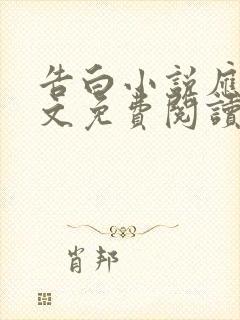 告白小説應
文免費閱讀
肖邦